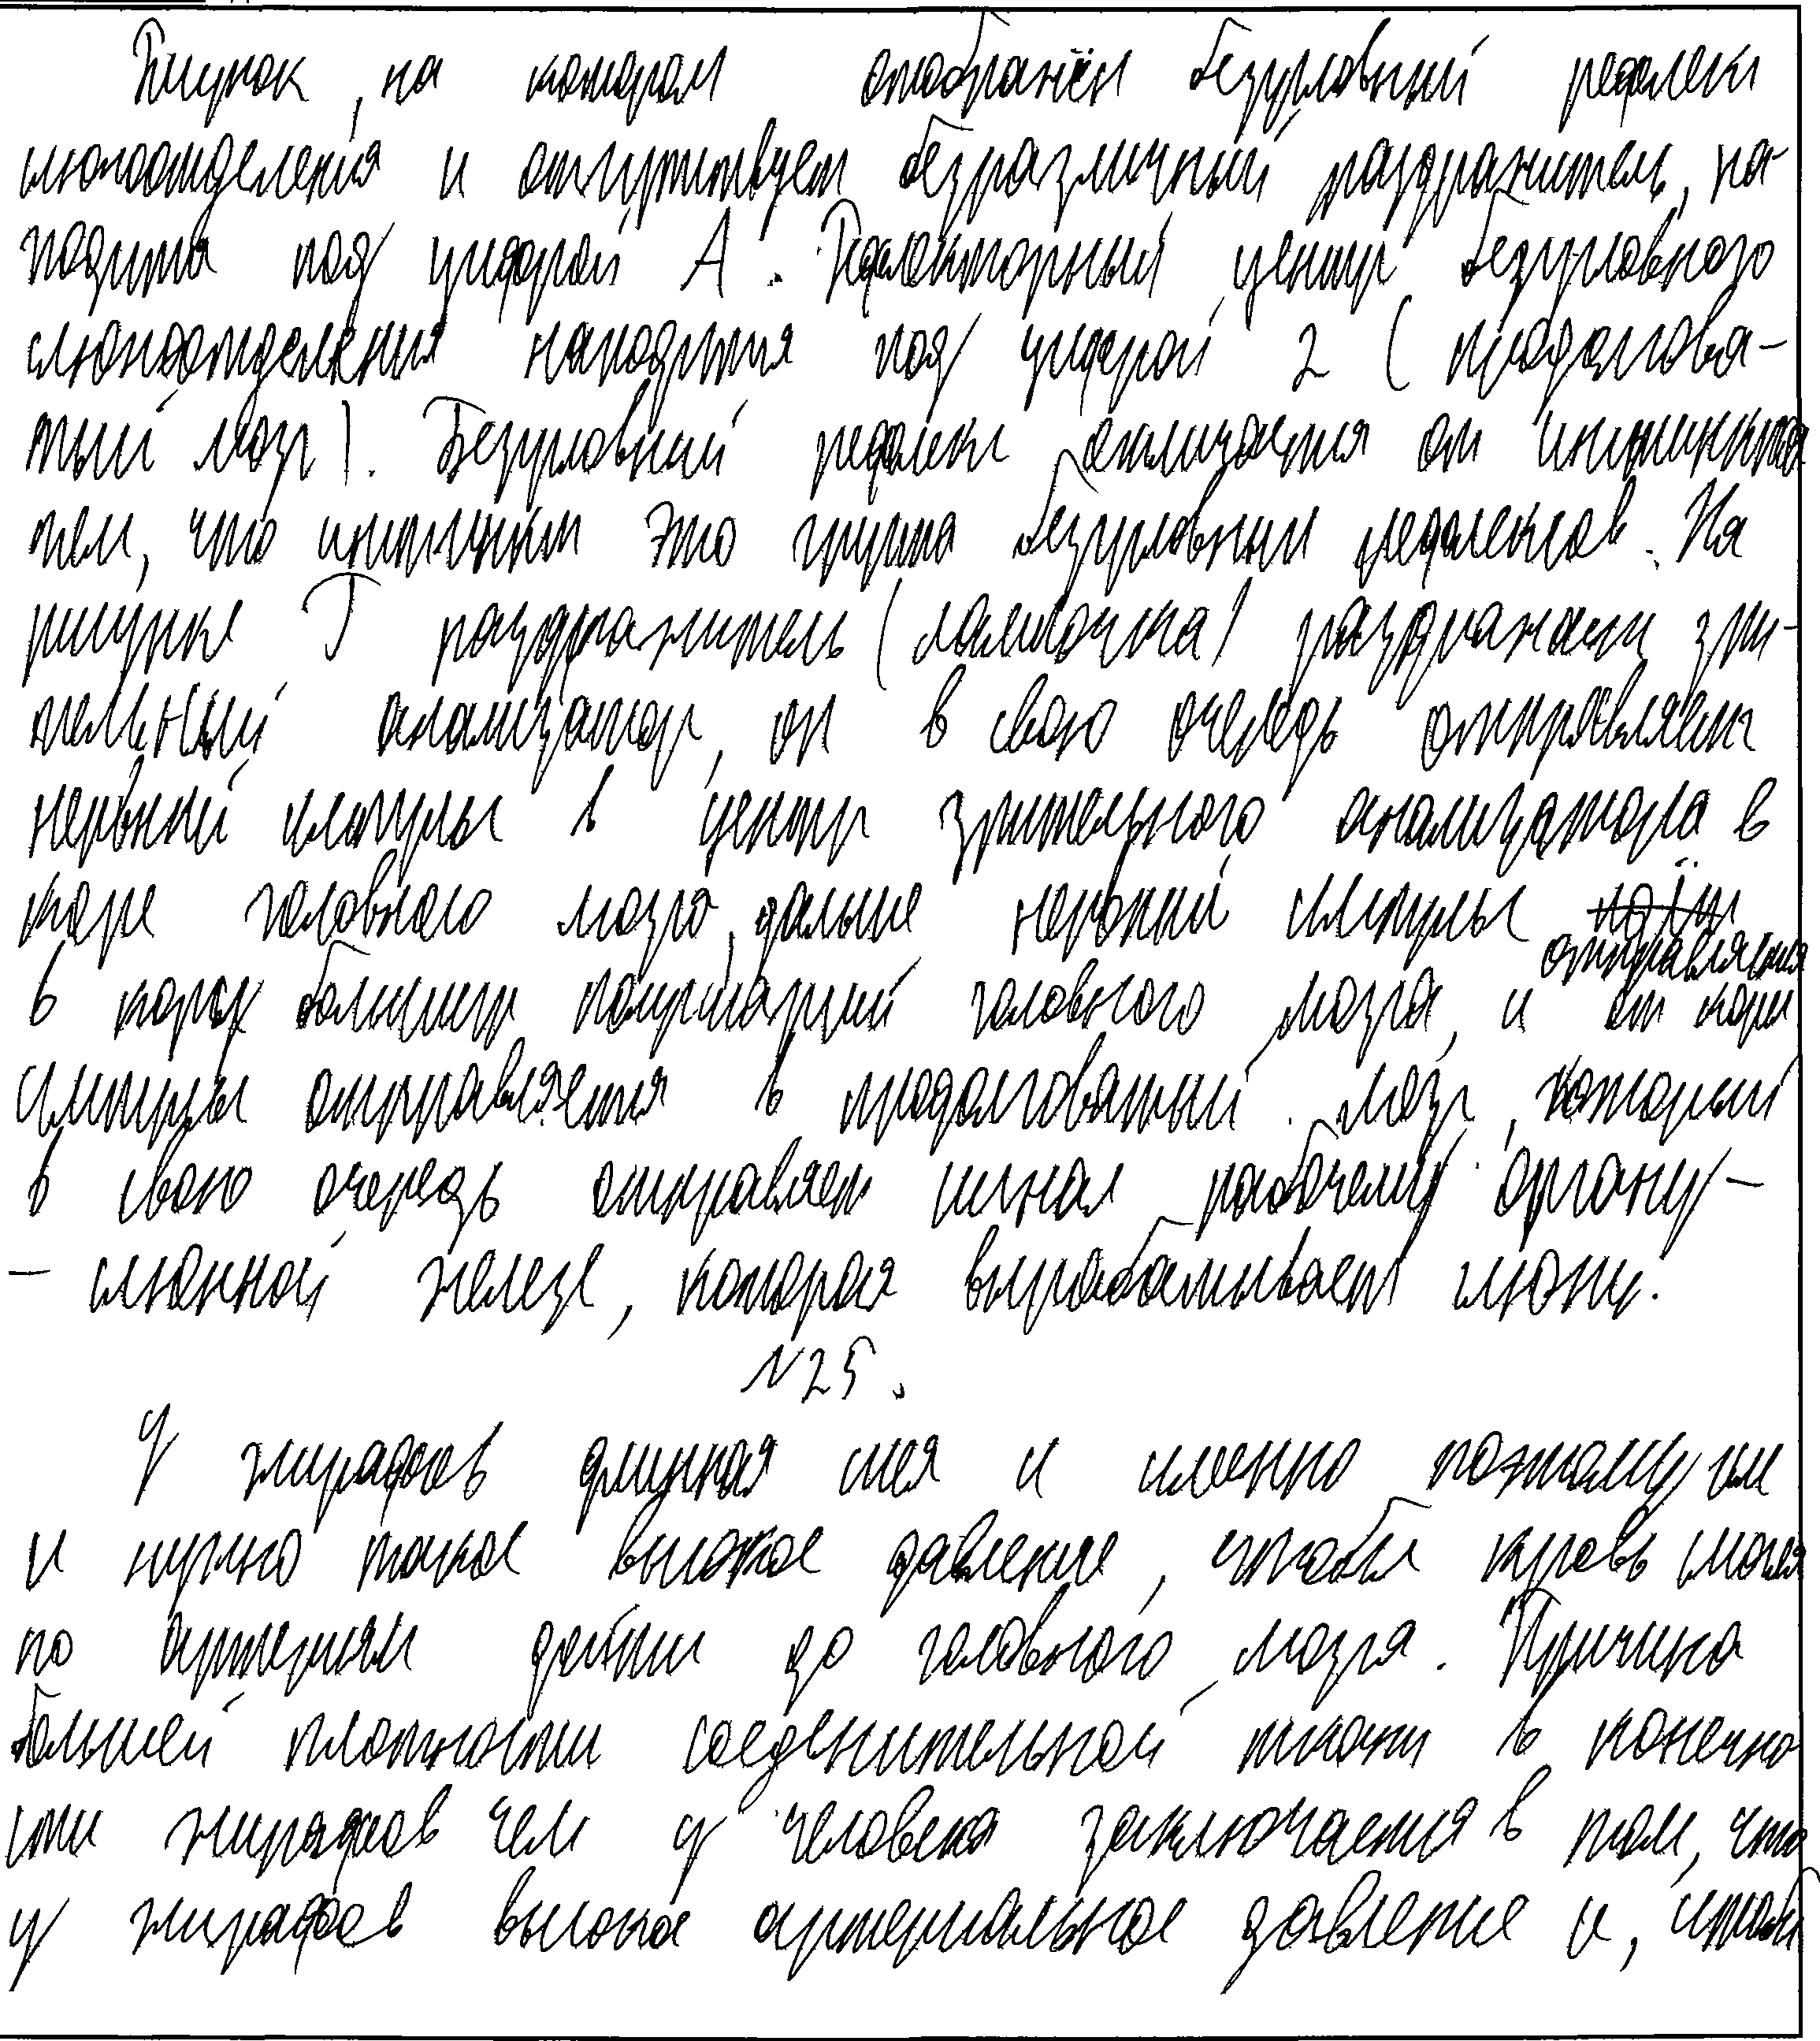 Рисунок, на котором отображён безусловный рефлекс
слюноотделения и отсутствует безразличный раздражитель, на-
ходится под цифрой А. Рефлекторный центр безусловного
слюноотделения находится под цифрой 2 (продолгова-
тый мозг). Безусловный рефлекс отличается от инстинкта
тем, что инстинкт это группа безусловных рефлексов. На
рисунке Г раздражитель (лампочка) раздражает зри-
тельный анализатор, он в свою очередь отправляет
нервный импульс в центр зрительного анализатора в
коре головного мозга, дальше нервный импульс
отправляется
в кору больших полушарий головного мозга, и от коры
импульс отправляется в продолговатый мозг, который
в свою очередь отправляет сигнал рабочему органу-
- слюнной железе, которая вырабатывает слюну.
N25.
У жирафов длинная шея и именно поэтому им
и нужно такое высокое давление, чтобы кровь смогла
по артериям дойти до головного мозга. Причина
большей плотности соеденительной ткани в конечно
сти жирафов чем у человека заключается в том, что
у жирафов высокое артериальное давление и, чтобы